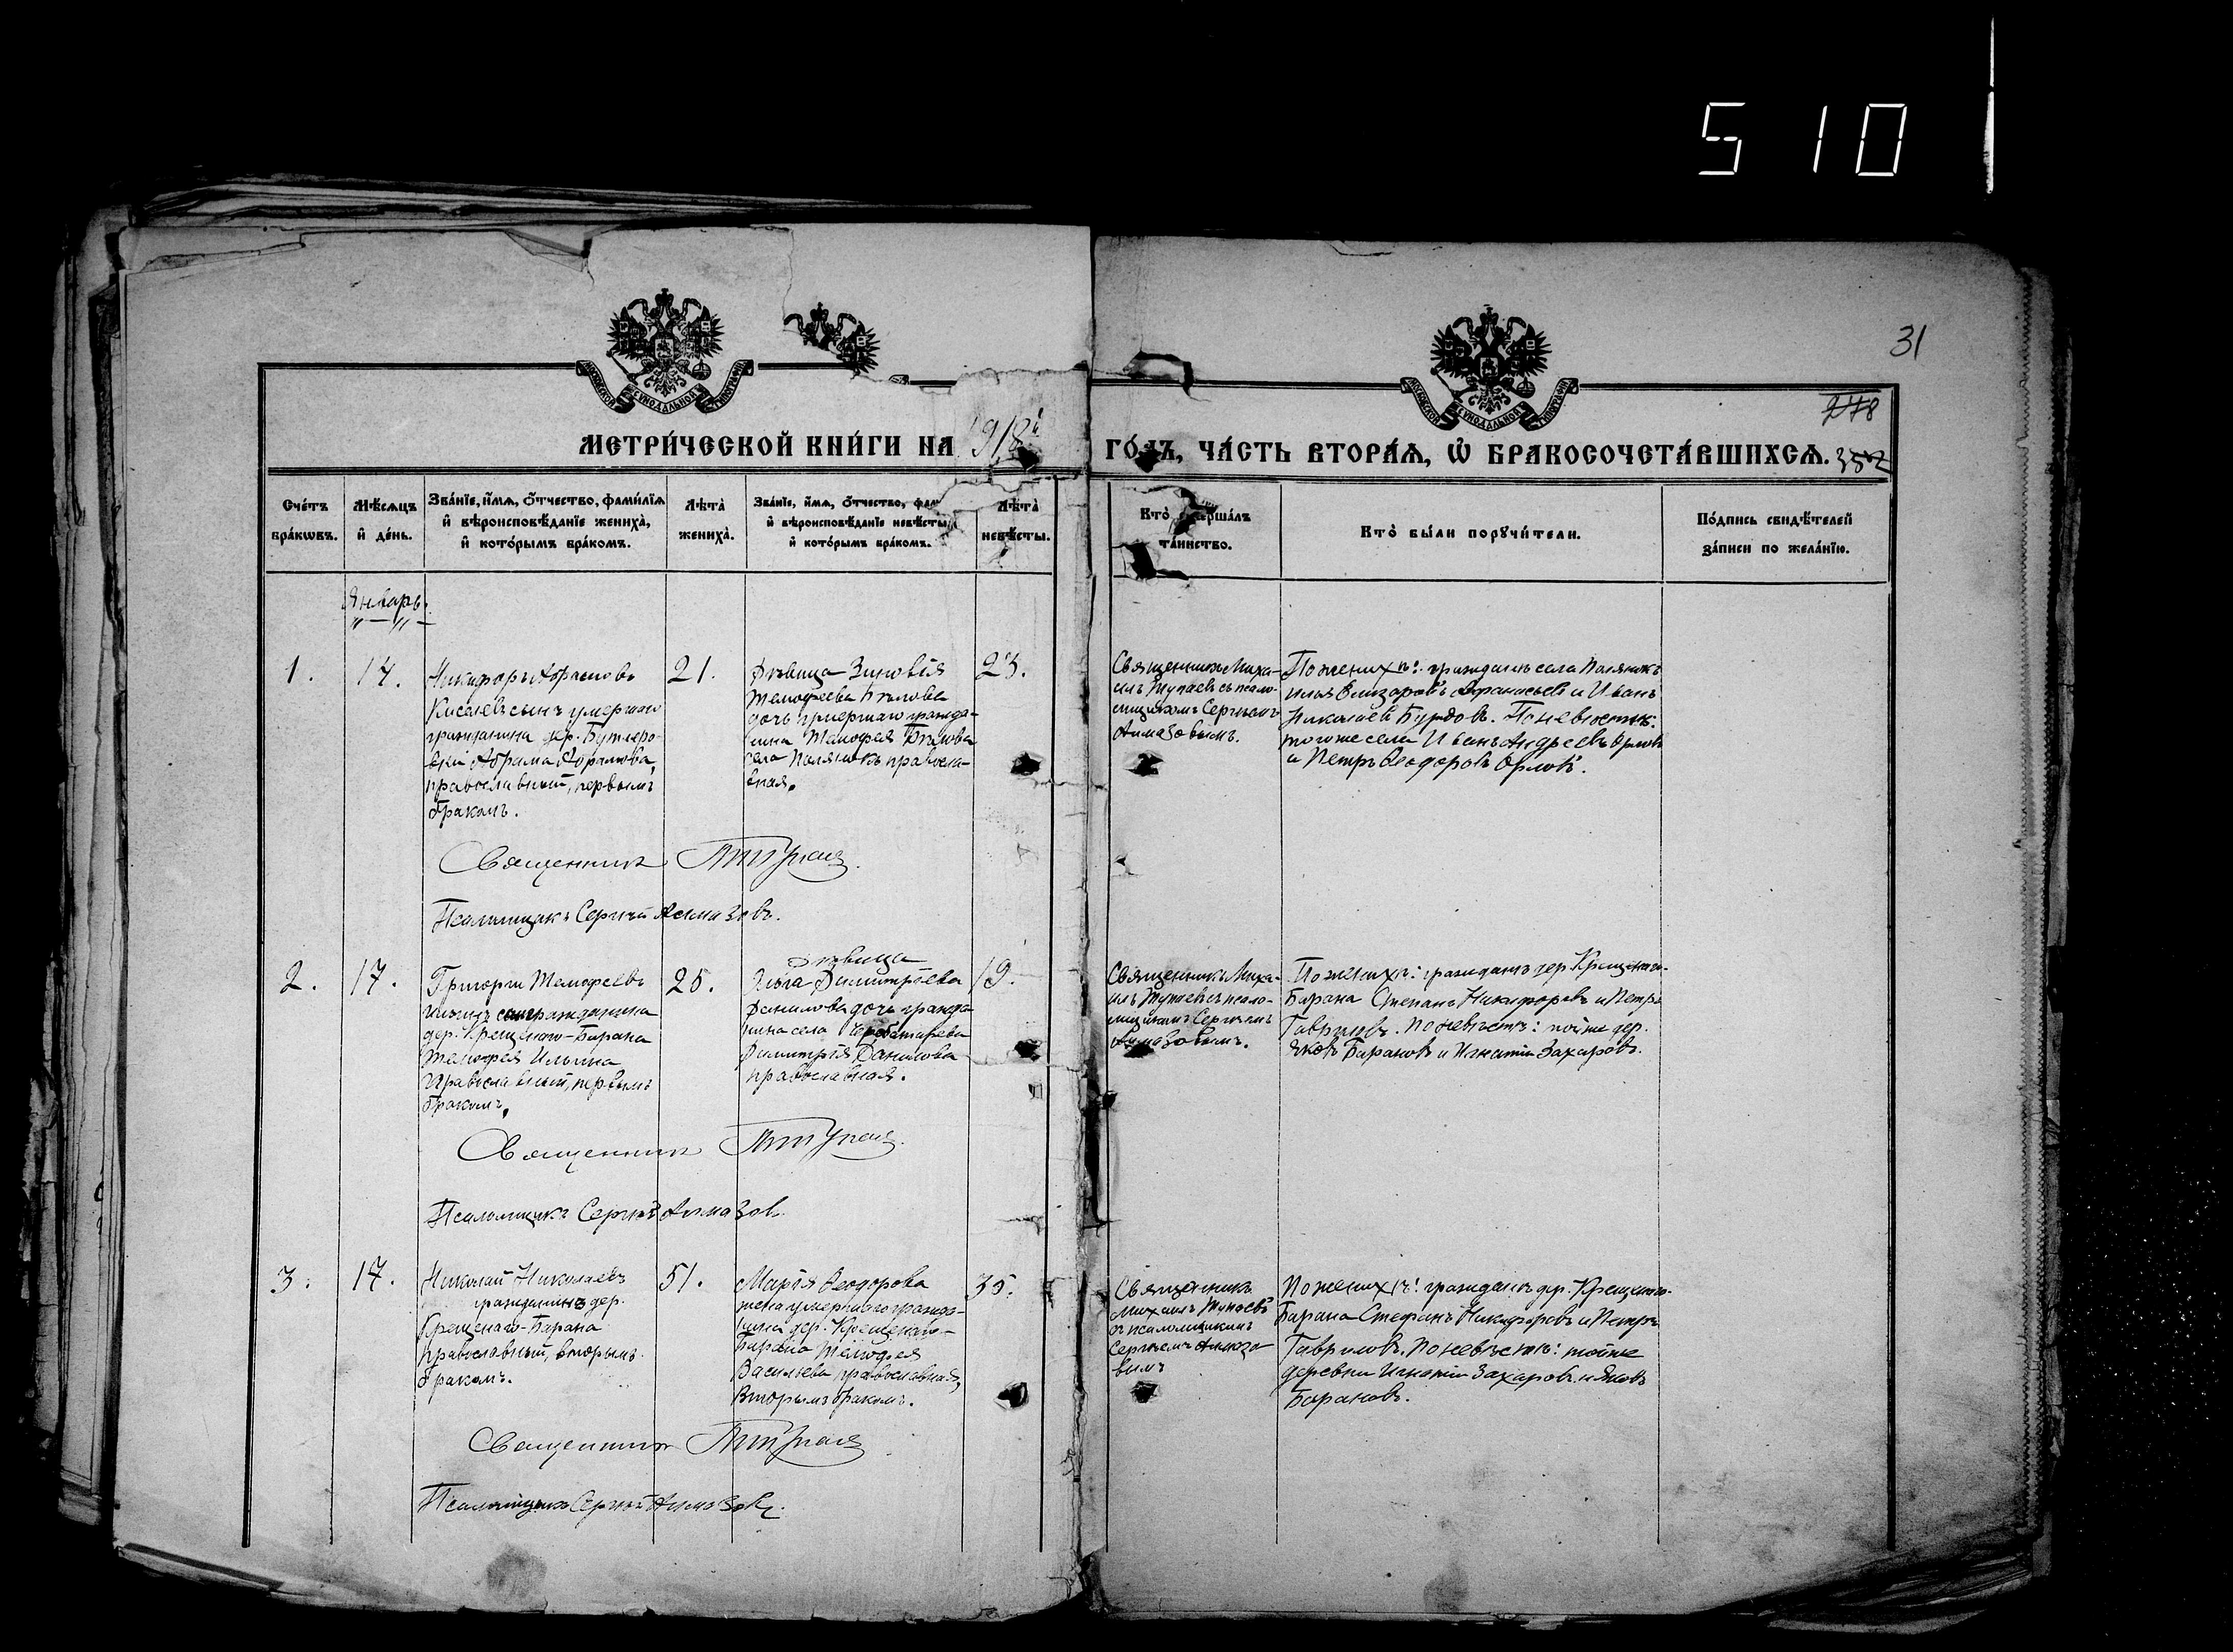 510
31
278
МОСКОВСКОЙ СѴНОДАЛЬНОЙ ТИПОГРАФІИ
МОСКОВСКОЙ СѴНОДАЛЬНОЙ ТИПОГРАФІИ
МЕТРИ́ЧЕСКОЙ КНИ́ГИ НА 1918й ГО́ДЪ, ЧА́СТЬ ВТОРА́Ѧ, Ѡ҆ БРАКОСОЧЕТА́ВШИХСѦ. 352
Сче́тъ бра́кѡвъ.
Мѣ́сѧцъ и҆ де́нь.
Зва́нїе, и҆́мѧ, ѻ҆́тчество, фами́лїѧ
и҆ вѣроисповѣ́данїе жениха̀,
и҆ кото́рымъ бра́комъ.
Лѣта̀ жениха̀.
Зва́нїе, и҆́мѧ, ѻ҆́тчество, фам
и҆ вѣроисповѣ́данїе невѣ́сты,
и҆ кото́рымъ бра́комъ.
Лѣта̀ невѣ́сты.
Кто̀ ершáлъ
та́инство.
Кто̀ бы́ли порꙋчи́тели.
По́дпись свидѣ́телей
за́писи по жела́нїю.
Январь.
1.
14.
Никифоръ Абрамовъ
Киселевъ сынъ умершаго
гражданина дер. Бутлеро-
вки Абрама Абрамова,
православный, первымъ
бракомъ.
21.
Дѣвица Зиновія
Тимофеева Бѣлова
дочь умершаго гражда-
нина Тимофея Бѣлова
села Полянокъ правосла-
вная.
23.
Священникъ Миха-
илъ Тунаевъ съ псало-
мщикомъ Сергѣемъ
Алмазовымъ.
По женихѣ: граждане села Полянокъ
Илья Елизаровъ Афанасьевъ и Иванъ
Николаевъ Бурдовъ. По невѣстѣ:
того же села Иванъ Андреевъ Орловъ
и Петръ Ѳеодоровъ Орловъ.
Священникъ МТунаев
Псаломщикъ Сергѣй Алмазовъ.
2.
17.
Григорій Тимофеевъ
Ильинъ сынъ гражданина
дер. Крещенаго-Барана
Тимофея Ильина
Православный, первымъ
бракомъ.
25.
Дѣвица
Ольга Димитріева
Данилова дочь гражда
нина села
Димитрія Данилова
православная.
19.
Священникъ Миха-
илъ Тунаевъ съ псало-
мщикомъ Сергѣемъ
Алмазовымъ.
По женихѣ: граждане дер. Крещенаго-
Барана Степанъ Никифоровъ и Петръ
Гавриловъ. По невѣстѣ: той же дер.
Яковъ Барановъ и Игнатій Захаровъ.
Священникъ МТунаев
Псаломщикъ Сергѣй Алмазовъ
3.
17.
Николай Николаевъ
гражданинъ дер.
Крещенаго-Барана
православный, вторымъ
бракомъ.
51.
Марія Ѳеодорова
жена умершаго гражда-
нина дер. Крещенаго-
Барана Тимофея
Васильева православная,
вторымъ бракомъ.
35.
Священникъ
Михаилъ Тунаевъ
съ псаломщикомъ
Сергѣемъ Алмазо
вымъ
По женихѣ: граждане дер. Крещенаго-
Барана Стефанъ Никифоровъ и Петръ
Гавриловъ. По невѣстѣ: той же
деревни Игнатій Захаровъ и Яковъ
Барановъ.
Священникъ МТунаев
Псаломщикъ Сергѣй Алмазовъ.